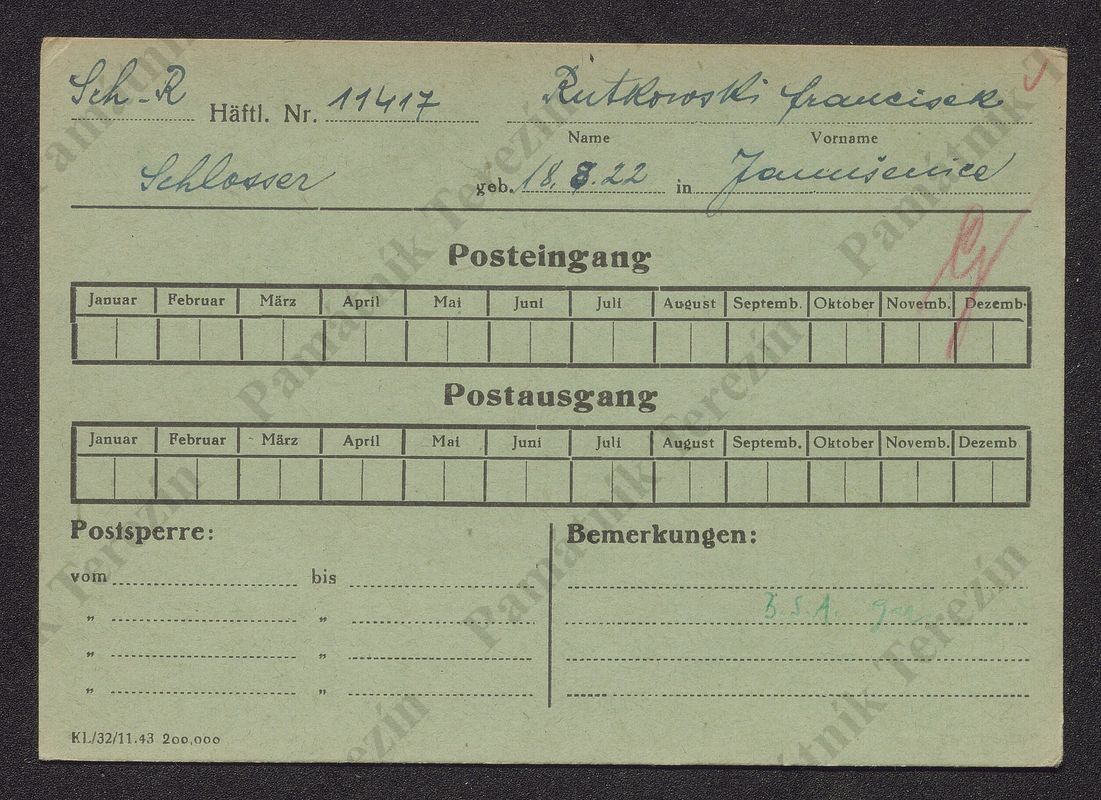 Sch-R Häftl. Nr. 11417 Rutkowski francisek
Name Vorname
Schlosser geb. 18.8.22 in Janušenice
Posteingang
Januar Februar März April Mai Juni Juli August Septemb. Oktober Novemb. Dezemb.
Postausgang
Januar Februar März April Mai Juni Juli August Septemb. Oktober Novemb. Dezemb
Postsperre: Bemerkungen:
vom bis
„ „ B.S.A.
„ „
„ „
KL/32/11.43 200,000
Památník Terezín